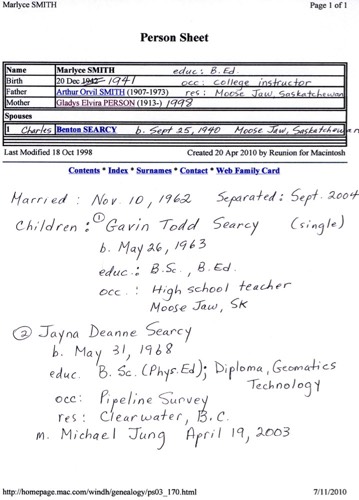 Marlyce SMITH Page 1 of 1
Person Sheet
Name Marlyce SMITH educ: B.Ed.
Birth 20 Dec 1942 - 1941 occ: college instructor
Father Arthur Orvil SMITH (1907-1973) res: Moose Jaw, Saskatchewan
Mother Gladys Elvira PERSON (1913-) 1998
Spouses
1 Charles Benton SEARCY b. Sept 25, 1940 Moose Jaw, Saskatchewan
Last Modified 18 Oct 1998 Created 20 Apr 2010 by Reunion for Macintosh
Contents * Index * Surnames * Contact * Web Family Card
Married : Nov. 10, 1962 Separated : Sept. 2004
Children : ① Gavin Todd Searcy (single)
b. May 26, 1963
educ : B.Sc., B.Ed.
occ. : High school teacher
Moose Jaw, SK
② Jayna Deanne Searcy
b. May 31, 1968
educ. B.Sc. (Phys.Ed); Diploma, Geomatics
Technology
occ: Pipeline Survey
res: Clearwater, B.C.
m. Michael Jung April 19, 2003
http://homepage.mac.com/windh/genealogy/ps03_170.html 7/11/2010